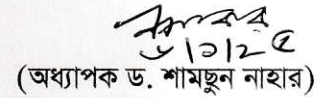 ৬|১|২৫
(অধ্যাপক ড. শামছুন নাহার)